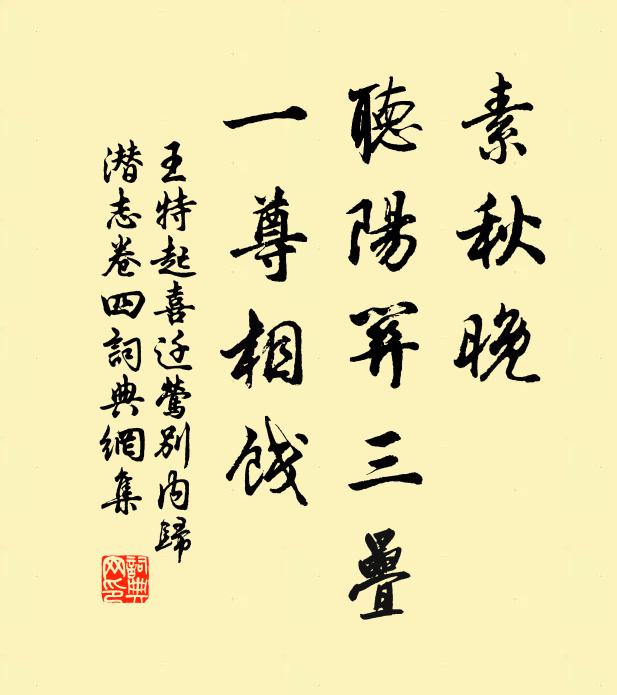 素秋晚
聽陽關三疊
一尊相餞
王特起喜迁鶯別内歸
潜志卷四詞典網集
詞典
网印